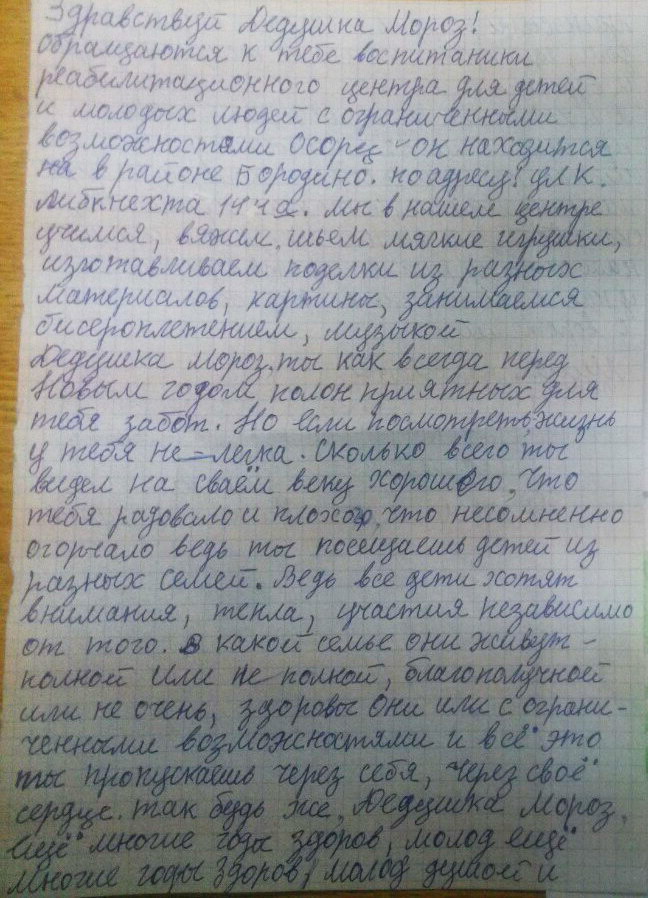 Здравствуй Дедушка Мороз!
Обращаются к тебе воспитаники
реабилитационного центра для детей
и молодых людей с ограниченными
возможностями Осорец - он находится
на в районе Бородино. по адресу: ул К.
Либкнехта 144а. Мы в нашем центре
учимся, вяжем, шьем мягкие игрушки,
изготавливаем поделки из разных
материалов, картины, занимаемся
бисероплетением, музыкой
Дедушка Мороз ты как всегда перед
Новым годом полон приятных для
тебя забот. Но если посмотреть, жизнь
у тебя не-легка. Сколько всего ты
видел на сваём веку хорошого, что
тебя радовало и плохого, что несомненно
огорчало ведь ты посещаешь детей из
разных семей. Ведь все дети хотят
внимания, тепла, участия независимо
от того. в какой семье они живут -
полной или не полной, благополучной
или не очень, здоровы они или с ограни-
ченными возможностями и всё это
ты пропускаешь через себя, через своё
сердце. так будь же, Дедушка Мороз,
ещё многие годы здоров, молод ещё
многие годы здоров, молод душой и